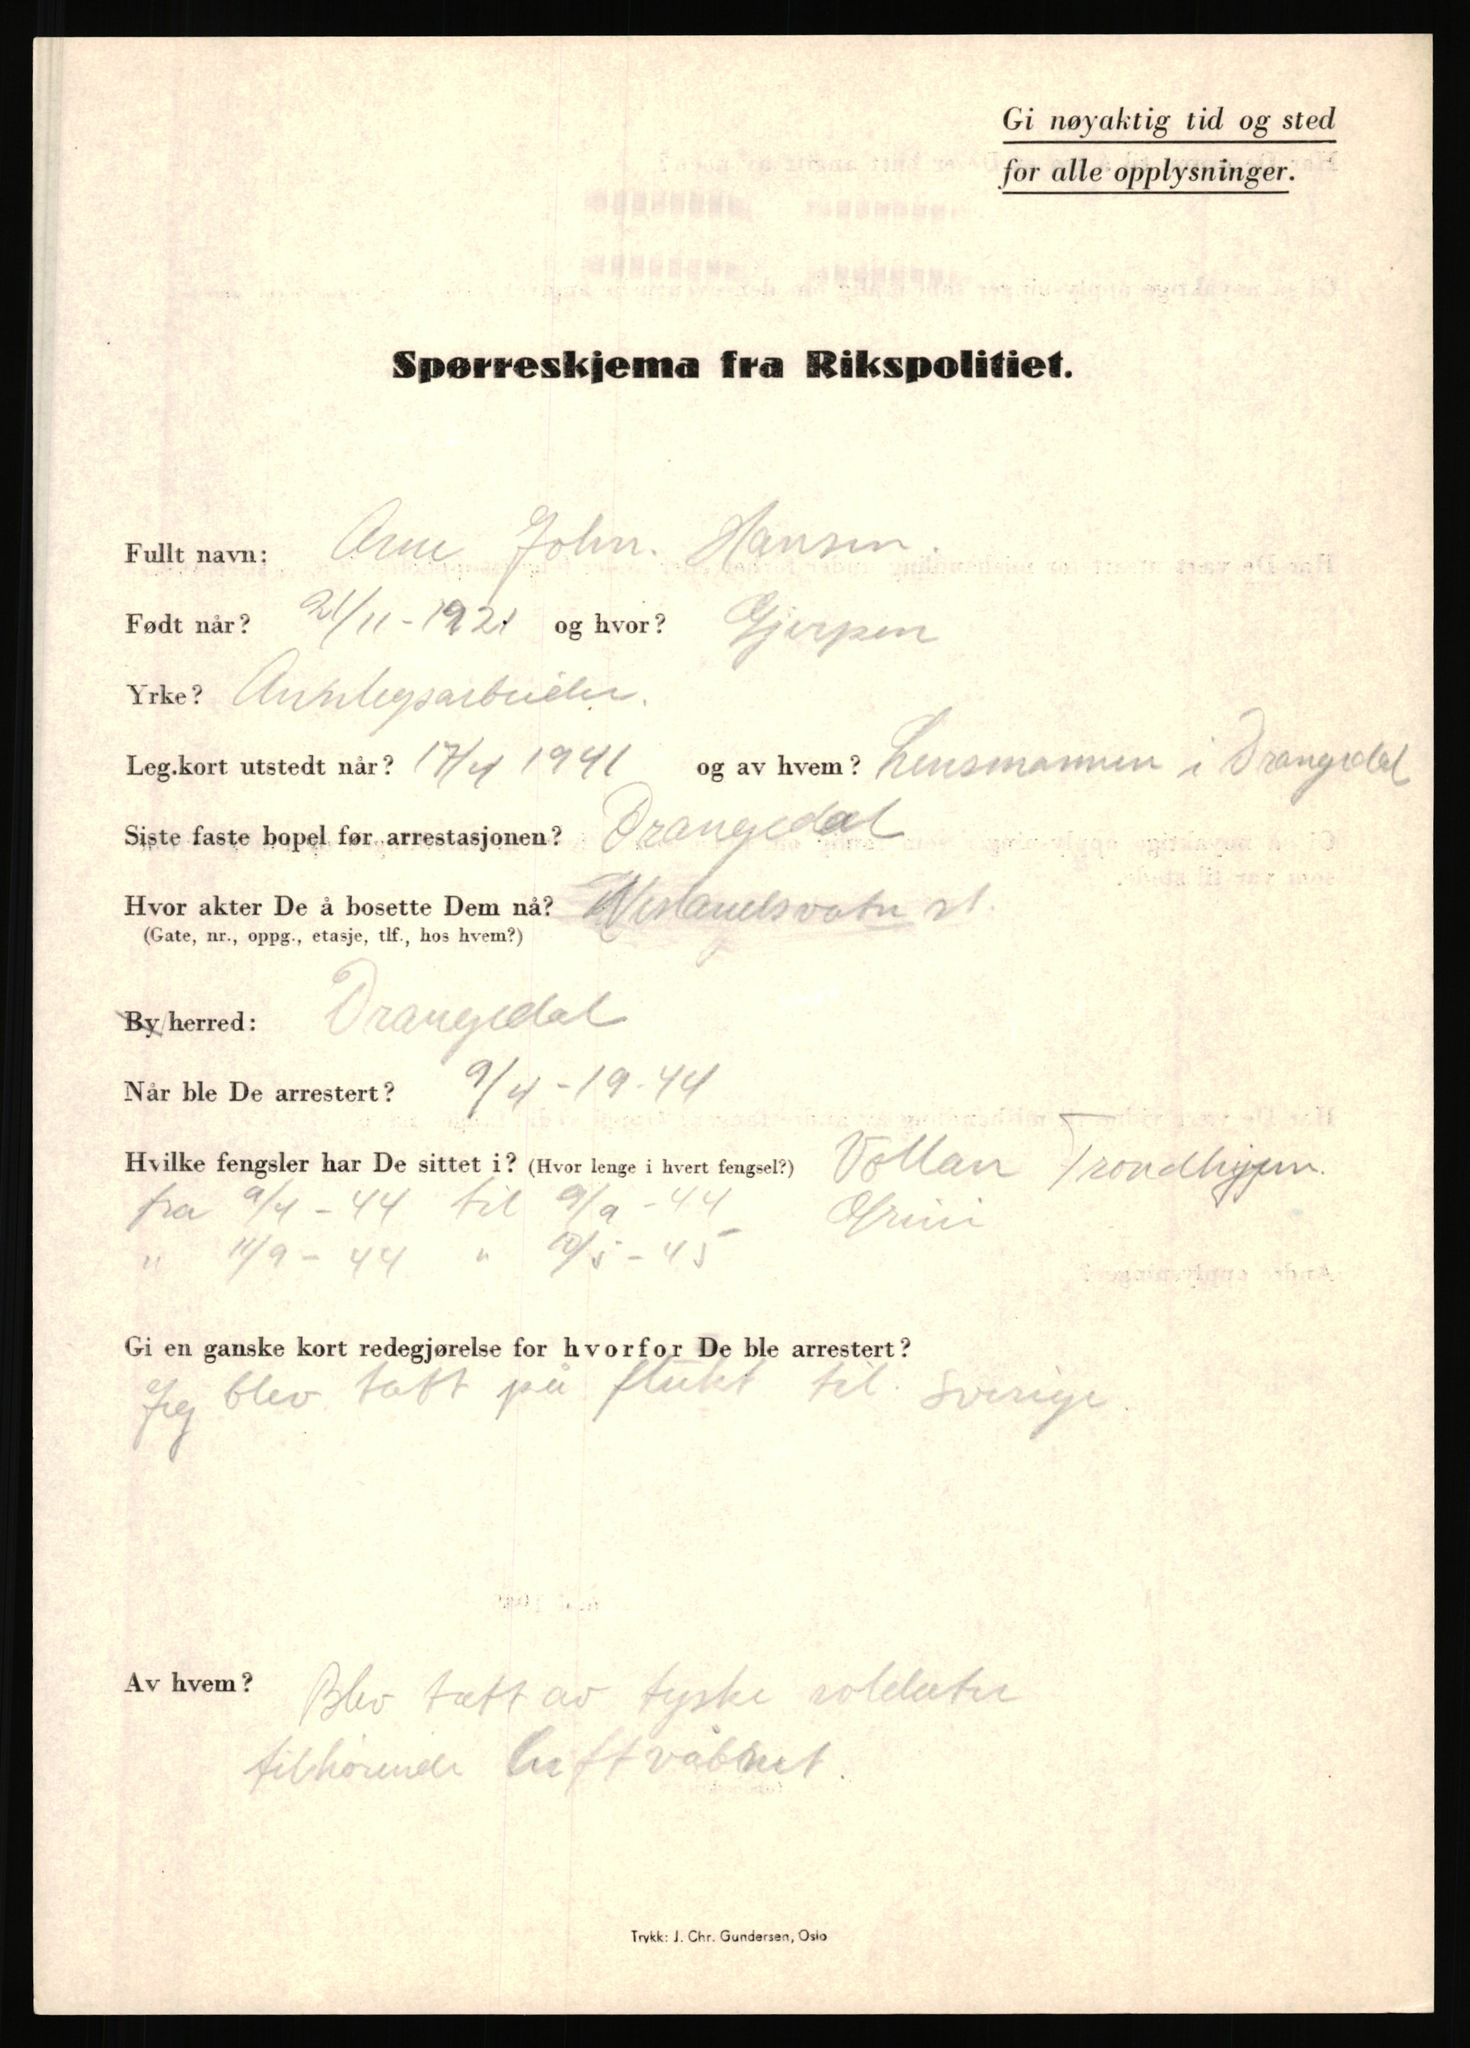 Gi nøyaktig tid og sted
for alle opplysninger.
Spørreskjema fra Rikspolitiet.
Fullt navn: Arne John. Hansen.
Født når? 21/11-1921 og hvor? Gjerpen
Yrke? Anlegsarbeider.
Leg.kort utstedt når? 17/4 1941 og av hvem? Lensmannen i Drangedal
Siste faste bopel før arrestasjonen? Drangedal
Hvor akter De å bosette Dem nå? st.
(Gate, nr., oppg., etasje, tlf., hos hvem?)
By/herred: Drangedal
Når ble De arrestert? 9/4-19-44
Hvilke fengsler har De sittet i? (Hvor lenge i hvert fengsel?) Vollan Trondhjem.
fra 9/4-44 til 9/9-44 Grini
" 11/9-44 " 10/5-45
Gi en ganske kort redegjørelse for hvorfor De ble arrestert?
Jeg blev tatt på flukt til Sverige.
Av hvem? Blev tatt av tyske soldater
tilhørende luftvåbnet.
Trykk: J. Chr. Gundersen, Oslo